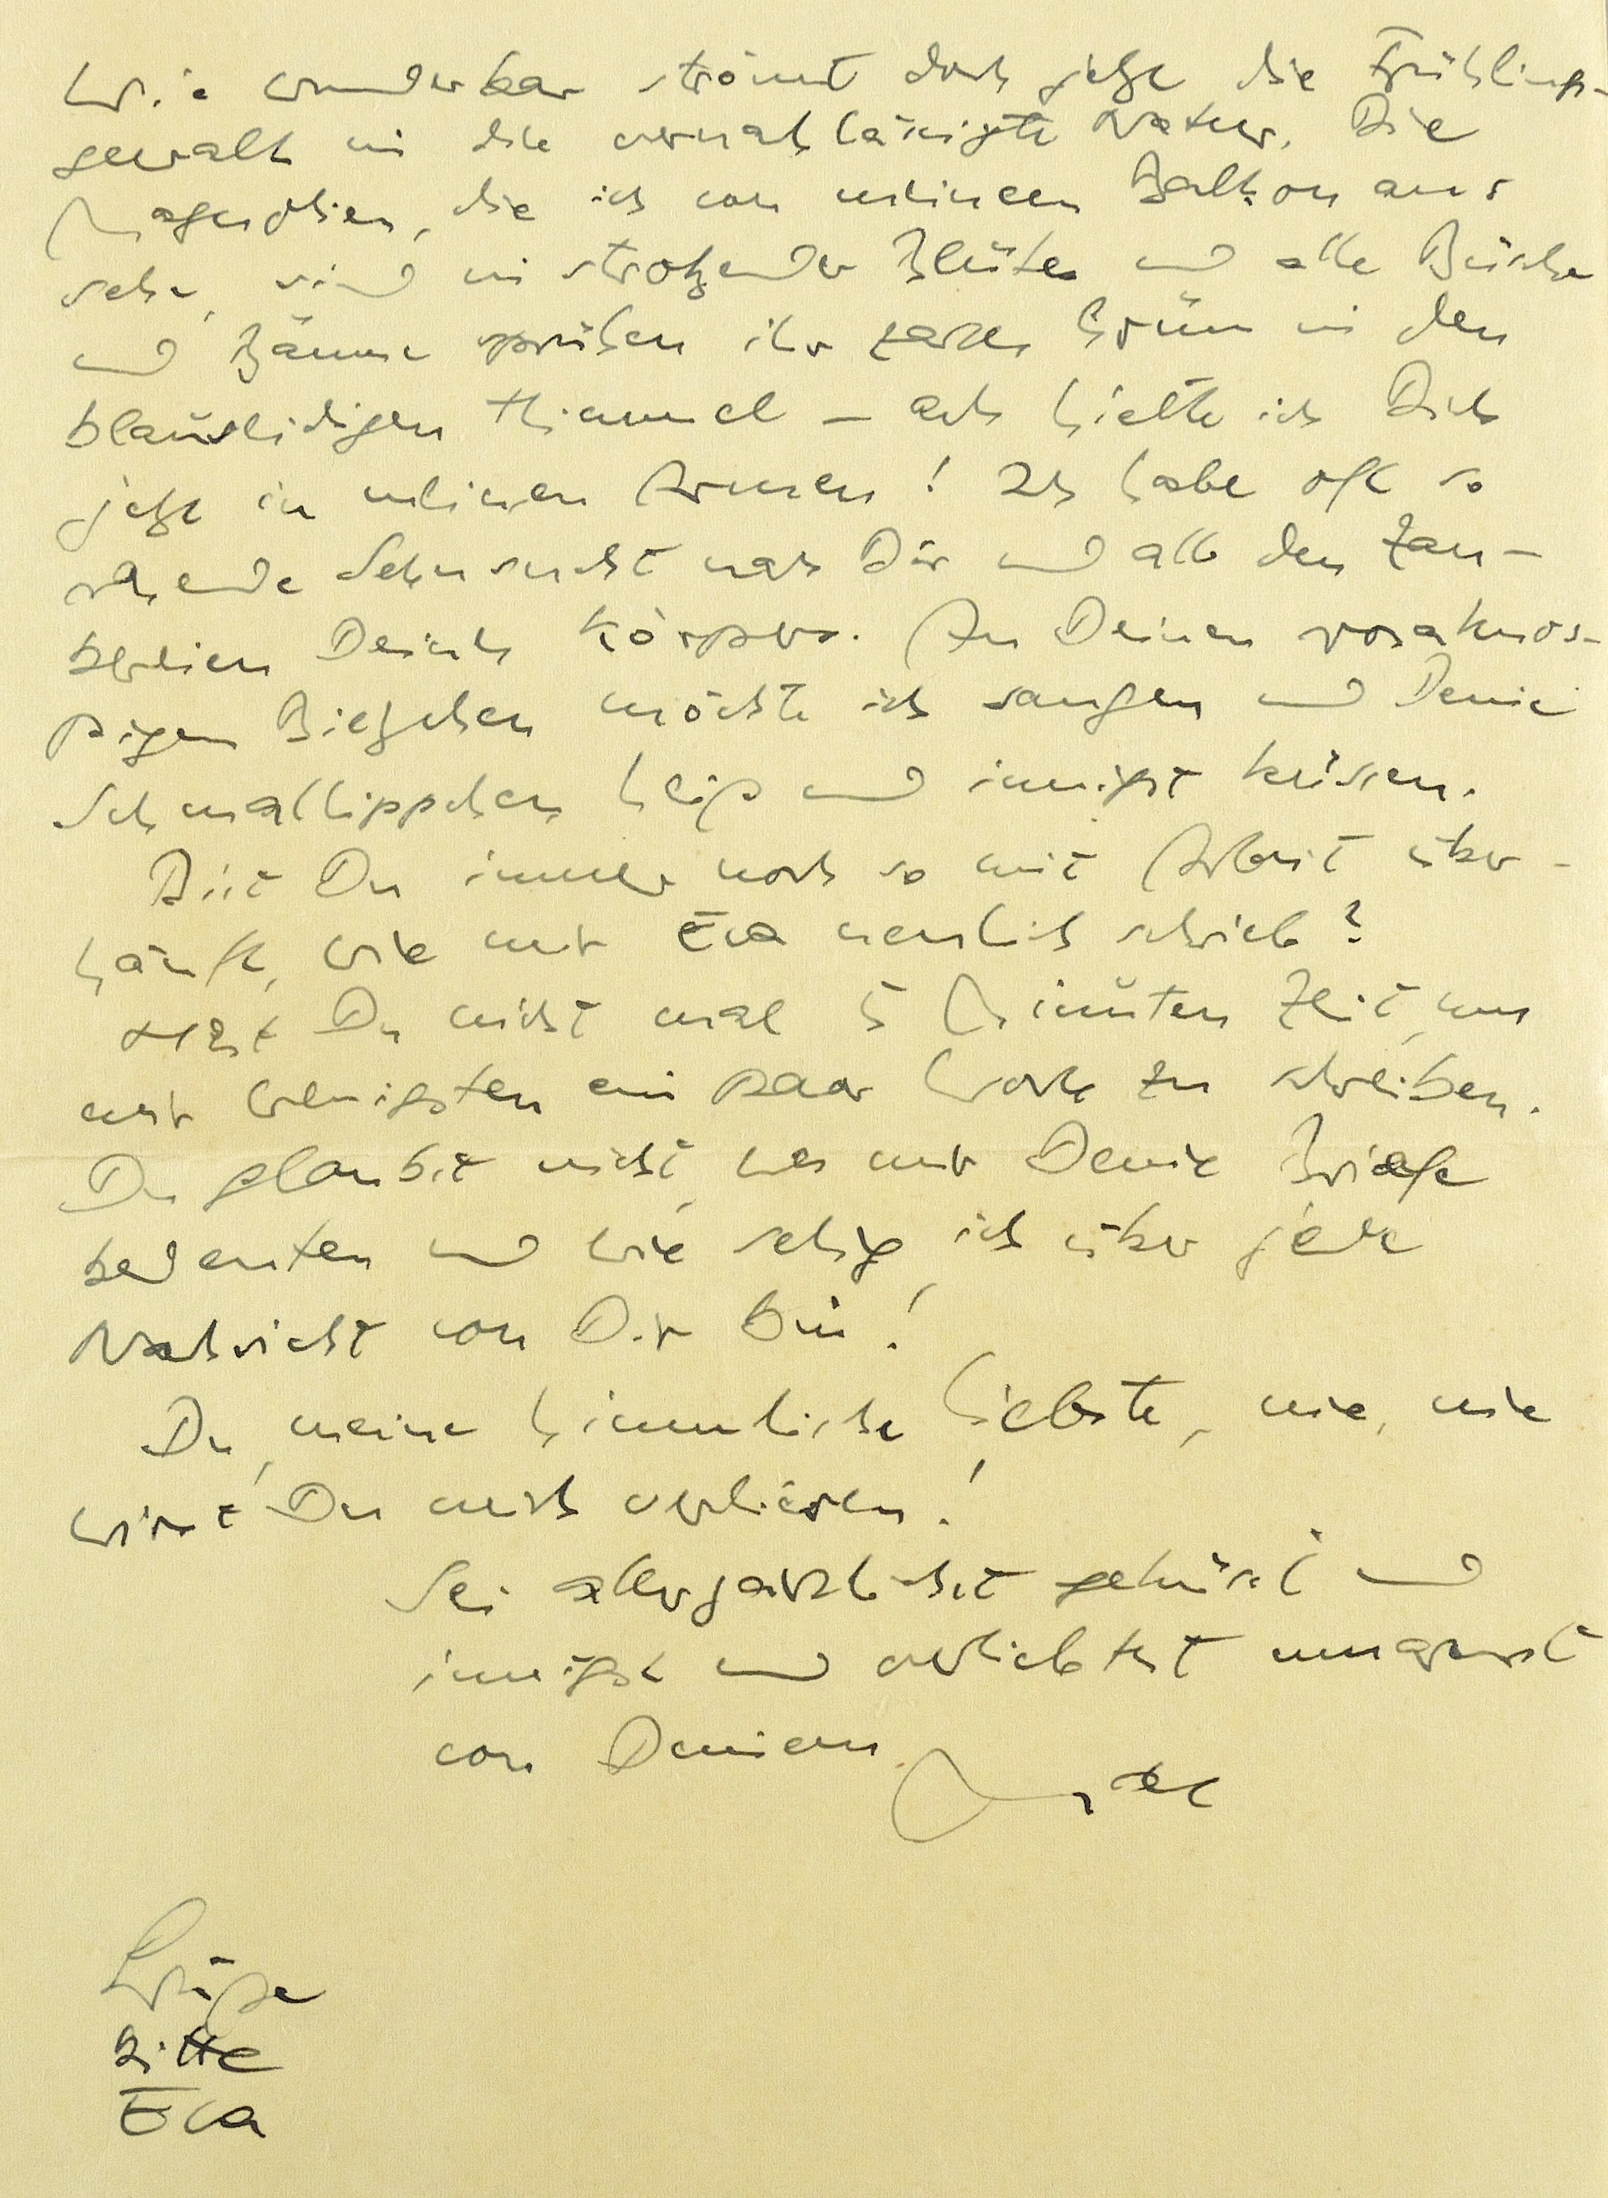 Wie wunderbar strömt doch jetzt die Frühlings-
gewalt in die vernachlässigte Natur. Die
Magnolien, die ich von meinem Balkon aus
sehe, sind in strotzender Blüte und alle Büsche
und Bäume sprühen ihr zartes Grün in den
blauseidigen Himmel – ach hielte ich Dich
jetzt in meinen Armen! Ich habe oft so
Sehnsucht nach Dir und all den Zau-
bereien Deines Körpers. An Deinen rosaknos-
pigen möchte ich saugen und Deine
Schmallippchen heiß und innigst küssen.
Bist Du immer noch so mit Arbeit über-
häuft, wie mir Eva neulich schrieb?
Hast Du nicht mal 5 Minuten Zeit, um
mir wenigsten ein paar Worte zu schreiben.
Du glaubst nicht, was mir Deine Briefe
bedeuten und wie selig ich über jede
Nachricht von Dir bin!
Du, meine himmlische Liebste, nie, nie
wirst Du mich verlieren!
Sei allerzärtlichst geküsst und
innigst und verliebtest umarmt
von Deinem
Grüße
bitte
Eva